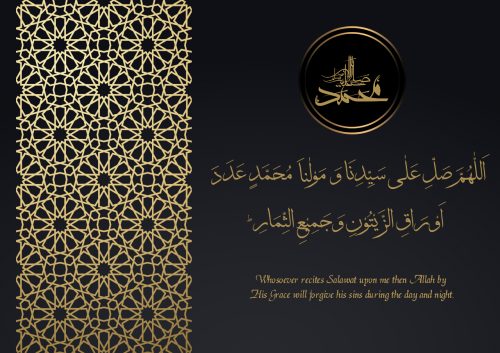 محمد
اَللّٰهُمَّ صَلِّ عَلٰى سَيِّدِنَا وَ مَوْلٰنَا مُحَمَّدٍ عَدَدَ
اَوْرَاقِ الزَّيْتُوْنِ وَ جَمِيْعِ الثِّمَارِ ؕ
Whosoever recites Salawat upon me then Allah by
His Grace will forgive his sins during the day and night.